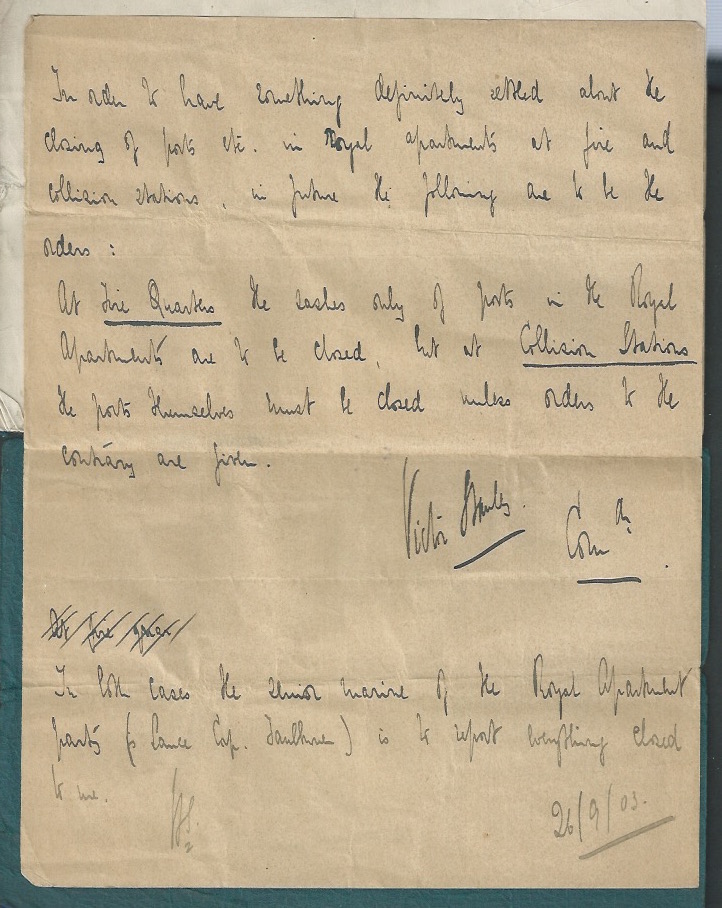 In order to have something definitely settled about the
closing of ports etc. in Royal apartments at fire and
collision stations, in future the following are to be the
orders:
At Fire Quarters the sashes only of ports in the Royal
Apartments are to be closed, but at Collision Stations
the ports themselves must be closed unless orders to the
contrary are given.
Victor Stanley. Comdr.
At fire quar
In both cases the senior marine of the Royal Apartment
party (Lance Cop. Faulkner) is to report everything closed
to me.
26/9/03.